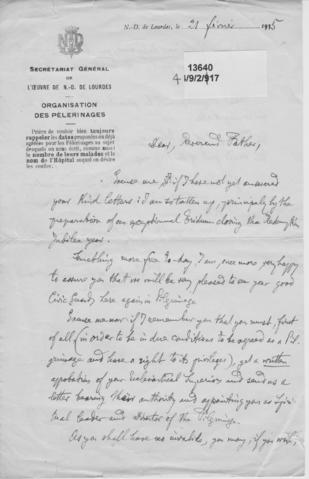 N.-D. de Lourdes, le 21 février 1935
SECRÉTARIAT GÉNÉRAL
DE
L'ŒUVRE DE N.-D. DE LOURDES
ORGANISATION
DES PÈLERINAGES
Prière de vouloir bien toujours
rappeler les dates proposées ou déjà
agréées pour les Pèlerinages au sujet
desquels on nous écrit, comme aussi
le nombre de leurs malades et le
nom de l'Hôpital auquel on désire
les confier.
13640
4/9/2/917
Dear Reverend Father,
Excuse me if I have not yet answered
your kind letters: I am so taken up, principally by the
preparation of an exceptional Triduum closing the Redemption
Jubilee year.
Something more free to-day I am, once more very happy
to assure you that we will be very pleased to see your good
Civic Guards here again in Pilgrimage
Excuse me now if I remember you that you must, first
of all (in order to be in due conditions to be agreed as a Pil-
grimage and have a right to its privileges), get a written
approbation of your Ecclesiastical Superiors and send us a
letter bearing their authority and appointing you as Spiri-
tual leader and Director of the Pilgrimage.
As you shall have no invalids, you may, if you wish,